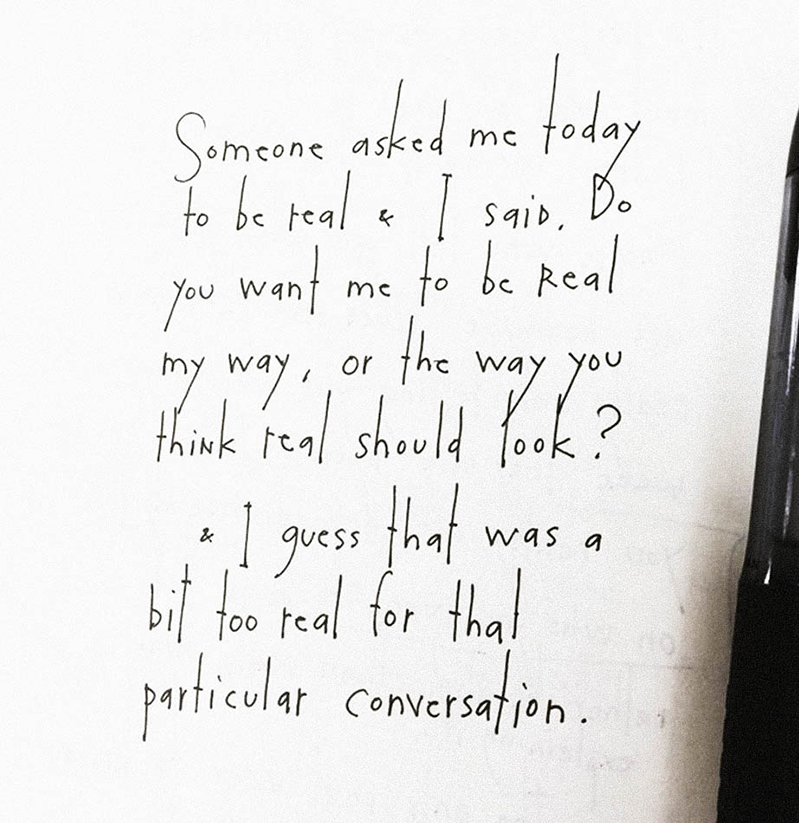 Someone asked me today
to be real & I said. Do
you want me to be Real
my way, or the way you
think real should look?
& I guess that was a
bit too real for that
particular conversation.